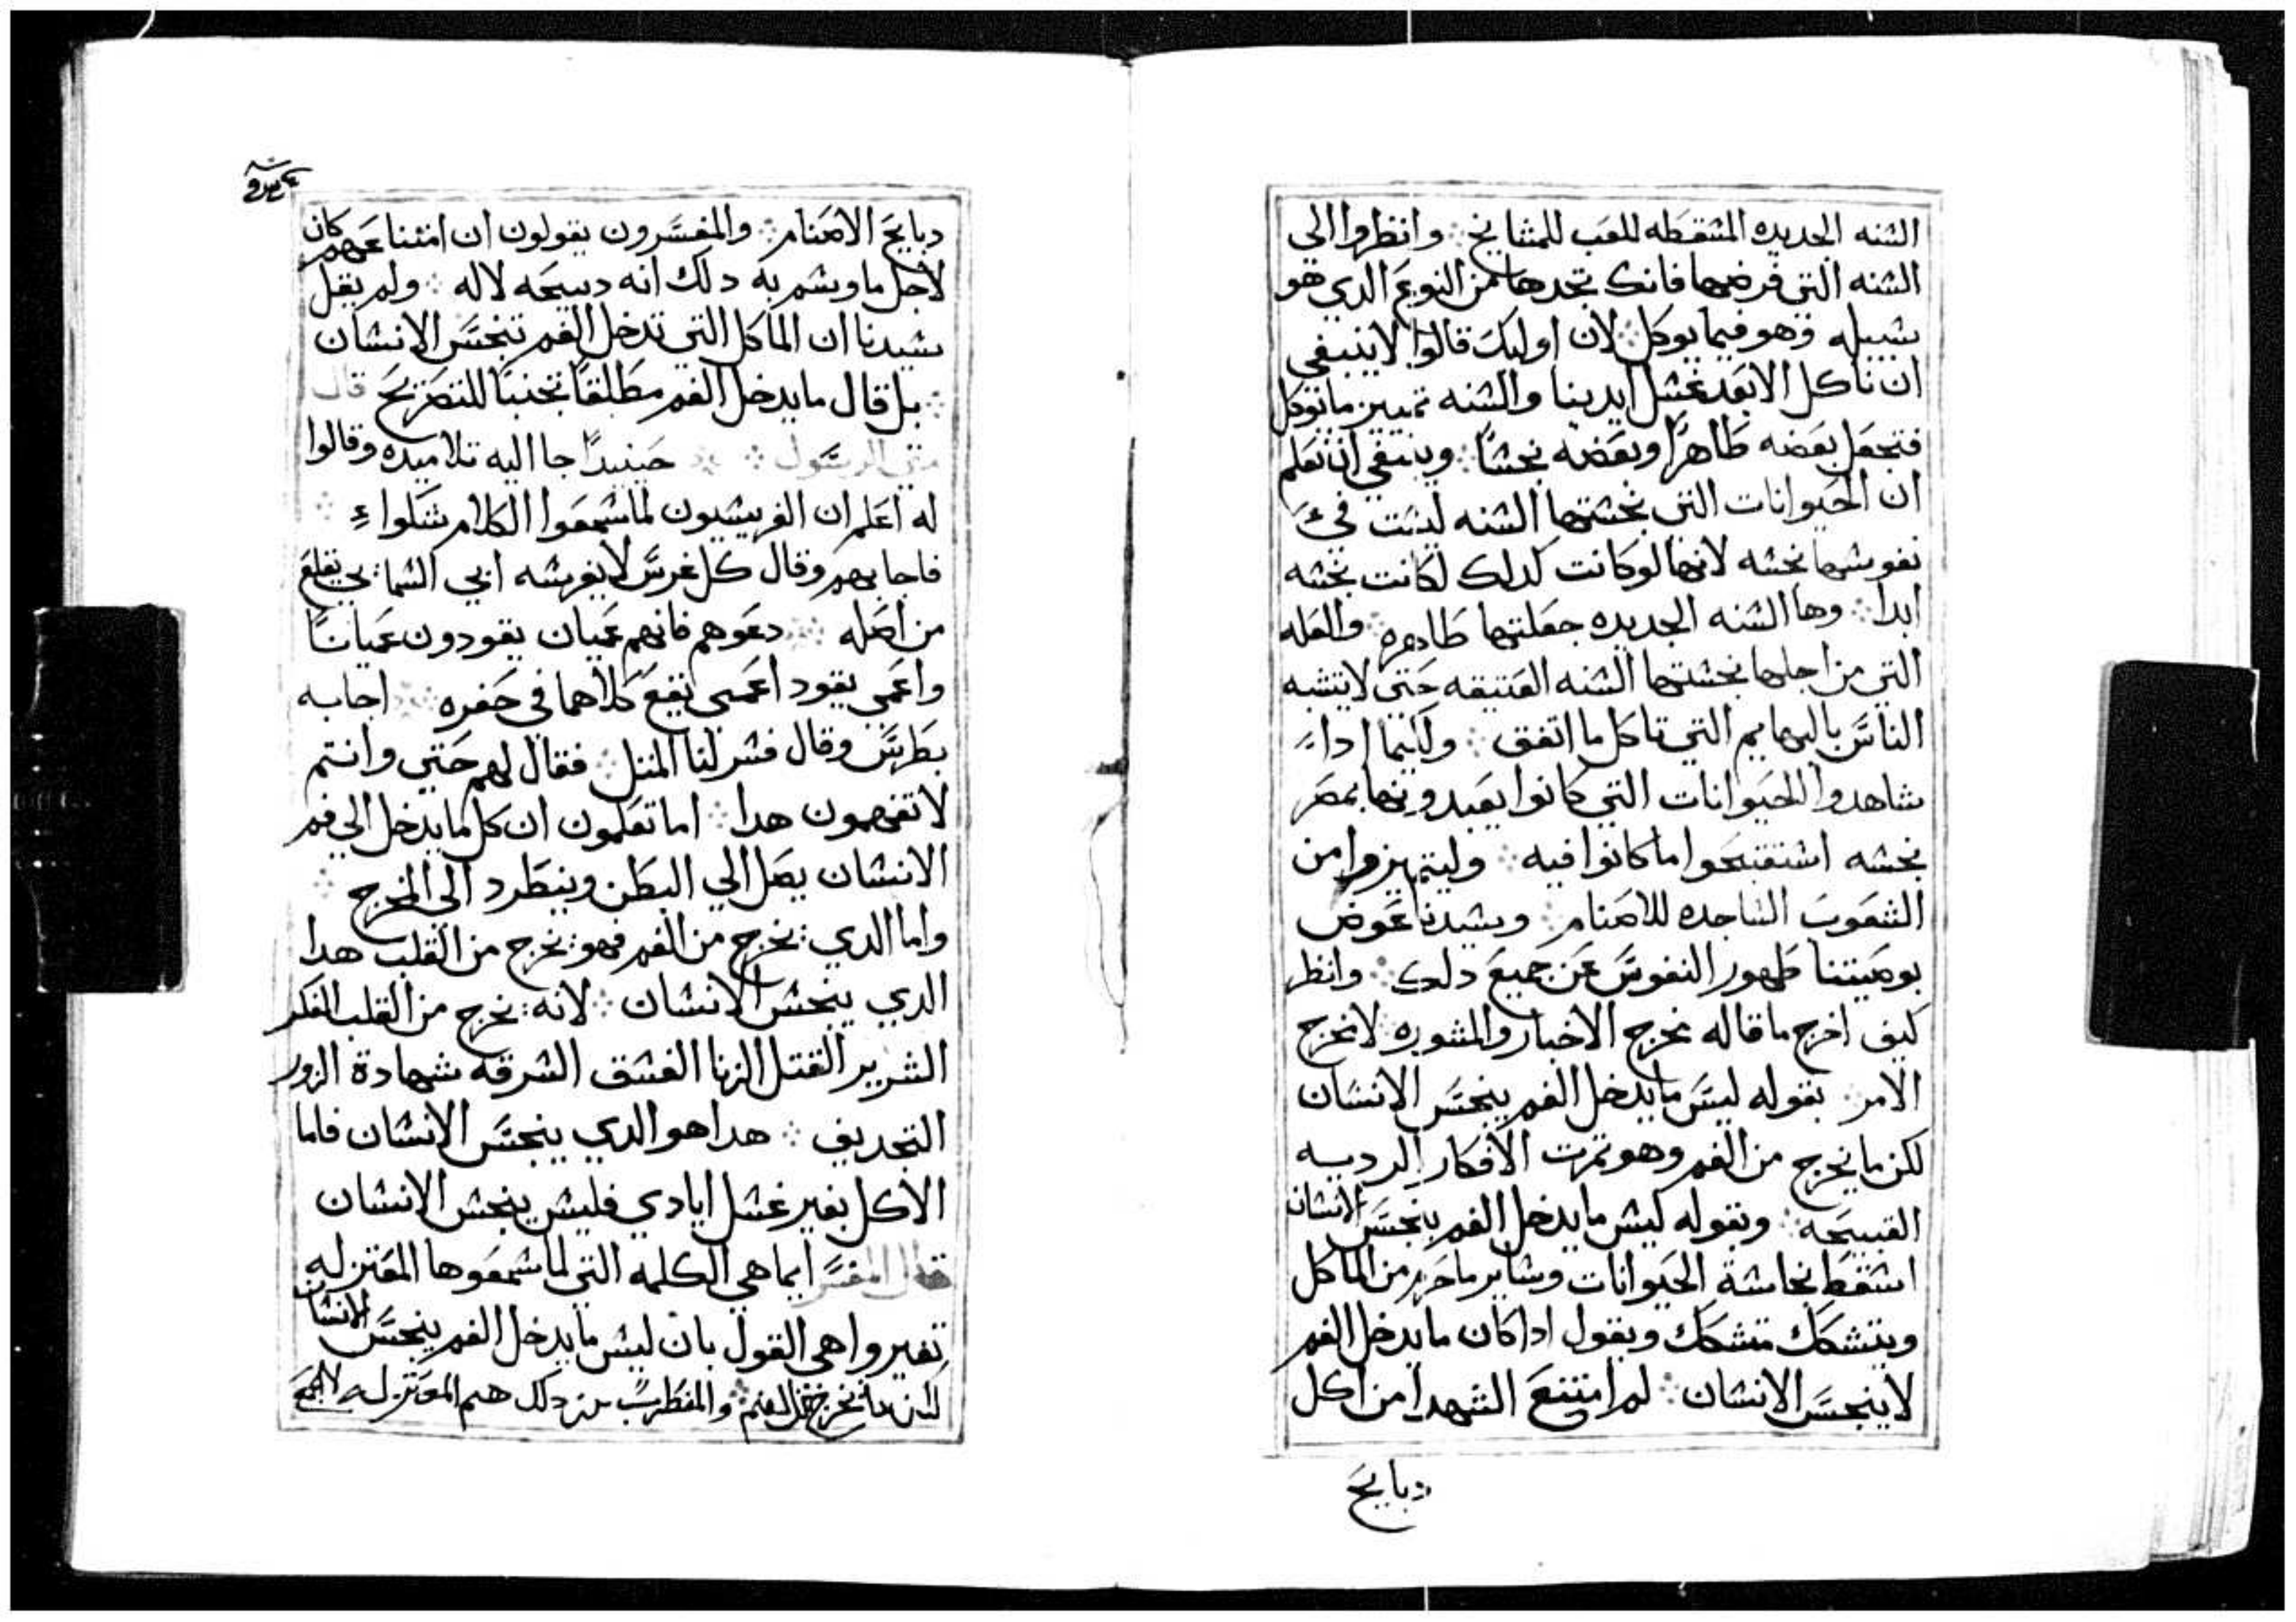 الشنه الجديده المشقطه للعب للمشايخ ∴ وانظروا الي
الشنه التي فرضها فانك تجدها من النوع الدي هو
شبيله وهو فيما يوكل ∴ لان اوليك قالوا لا ينبغي
ان ناكل الا بعد غشل ايدينا والشنه تميز ما توكل
فتجعل بعضه طاهرًا وبعضه نجشًا ∴ وينبغي ان تعلم
ان الحيوانات التي نجشتها الشنه ليشت في
نفوشها نجشه لانها لو كانت كدلك لكانت نجشه
ابدا ∴ وها الشنه الجديده جعلتها طاهره ∴ والعله
التي من اجلها نجشتها الشنه العتيقه حتي لا يتشبه
الناس بالبهايم التي تاكل ما اتفق ∴ وكيما ادا
شاهدوا الحيوانات التي كانوا يعبدونها بمصر
نجشه اشتقبحوا ما كانوا فيه ∴ وليتميزوا من
الشعوب الشاجده للاصنام ∴ وشيدنا عوض
بوصيتنا طهور النفوس عن جميع دلك ∴ وانظر
كيف اخرج ما قاله مخرج الاخبار والمشوره لا مخرج
الامر ∴ بقوله ليس ما يدخل الفم ينجس الانسان
لكن ما يخرج من الفم وهو تمرت الافكار الرديه
القبيحه ∴ وبقوله ليش ما يدخل الفم ينجس الانشان
اشقط نجاشة الحيوانات وشاير ما حرم من الماكل
ويتشكك متشكك ويقول ادا كان ما يدخل الفم
لا ينجس الانشان ∴ لم امتنع الشهدا من اكل
دبايح
دبايح الاصنام ∴ والمفسرون يقولون ان امتناعهم كان
لاجل ما وشم به دلك انه دبيحه لاله ∴ ولم يقل
شيدنا ان الماكل التي تدخل الفم تنجس الانشان
∴ بل قال ما يدخل الفم مطلقًا تجنبًا للتصريح قال
متي الرسول ∴ حينيدًا جا اليه تلاميده وقالوا
له اعلم ان الفريشيون لما شمعوا الكلام شكوا
فاجابهم وقال كل غرس لا يغرشه ابي الشمايي يقلع
من اصله ∴ دعوهم فانهم عميان يقودون عميانًا
واعمي يقود اعمي يقع كلاهما في حفره ∴ اجابه
بطرس وقال فشر لنا المتل ∴ فقال لهم حتي وانتم
لا تفهمون هدا ∴ اما تعلمون ان كل ما يدخل الي فم
الانشان يصل الي البطن وينطرد الي المخرج ∴
واما الدي يخرج من الفم فهو يخرج من القلب هدا
الدي ينجش الانشان ∴ لانه يخرج من القلب الفكر
الشرير القتل الزنا الفشق الشرقه شهادة الزور
التجديف ∴ هدا هو الدي ينجس الانشان فاما
الاكل بغير غشل ايادي فليش ينجش الانشان
قال المفسر ايما هي الكلمه التي لما شمعوها المعتزله
تغيروا هي القول بان ليش ما يدخل الفم ينجس الانشان
لكن ما يخرج من الفم ∴ والمضطرب من دلك هم المعتزله